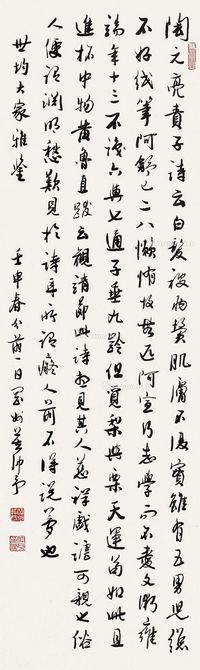 陶元亮責子詩云白髮被兩鬢肌膚不復實雖有五男兒總
不好紙筆阿舒已二八懶惰故無匹阿宣行志學而不愛文術雍
端年十三不識六與七通子垂九齡但覓梨與栗天運苟如此且
進杯中物黃魯直跋云觀靖節此詩想見其人慈祥戲謔可觀也俗
人便謂淵明愁歎見於詩耳所謂癡人前不得說夢也
世均大家雅鑒
壬申春分前一日